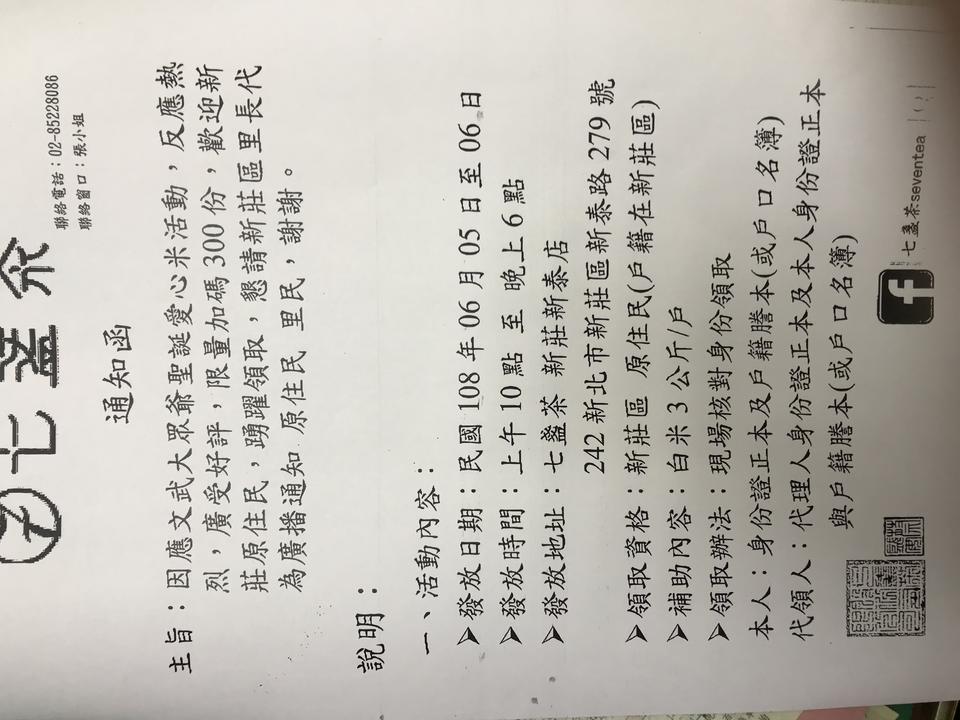 七盞茶
聯絡電話：02-85228086
聯絡窗口：張小姐
通知函
主旨：因應文武大眾爺聖誕愛心米活動，反應熱
烈，廣受好評，限量加碼300份，歡迎新
莊原住民，踴躍領取，懇請新莊區里長代
為廣播通知 原住民 里民，謝謝。
說明：
一、活動內容：
➢發放日期：民國108年06月05日至06日
➢發放時間：上午10點 至 晚上6點
➢發放地址：七盞茶 新莊新泰店
242新北市新莊區新泰路279號
➢領取資格：新莊區 原住民(戶籍在新莊區)
➢補助內容：白米3公斤/戶
➢領取辦法：現場核對身份領取
本人：身份證正本及戶籍謄本(或戶口名簿)
代領人：代理人身份證正本及本人身份證正本
與戶籍謄本(或戶口名簿)
七盞茶seventea